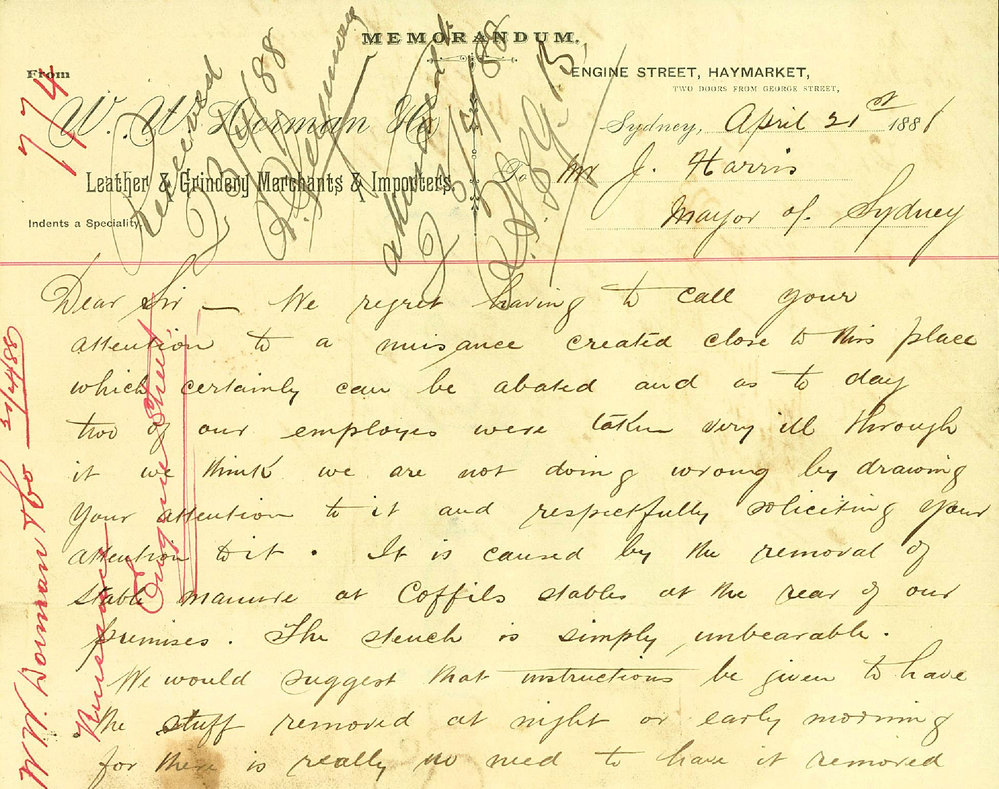 MEMORANDUM.
From
W. W. Dorman & Co
Leather & Grindery Merchants & Importers,
Indents a Speciality.
ENGINE STREET, HAYMARKET,
TWO DOORS FROM GEORGE STREET,
Sydney, April 21st 188
To Mr J. Harris
Mayor of Sydney
77/4
Received
23/4/88
88
Dear Sir – We regret having to call your
attention to a nuisance created close to this place
which certainly can be abated and as to day
two of our employes were taken very ill through
it we think we are not doing wrong by drawing
your attention to it and respectfully soliciting your
attention to it. It is caused by the removal of
stable manure at Coffils stables at the rear of our
premises. The stench is simply unbearable.
We would suggest that instructions be given to have
the stuff removed at night or early morning
for there is really no need to have it removed
W W. Dorman & Co 21/4/88
Nuisance
Engine Street